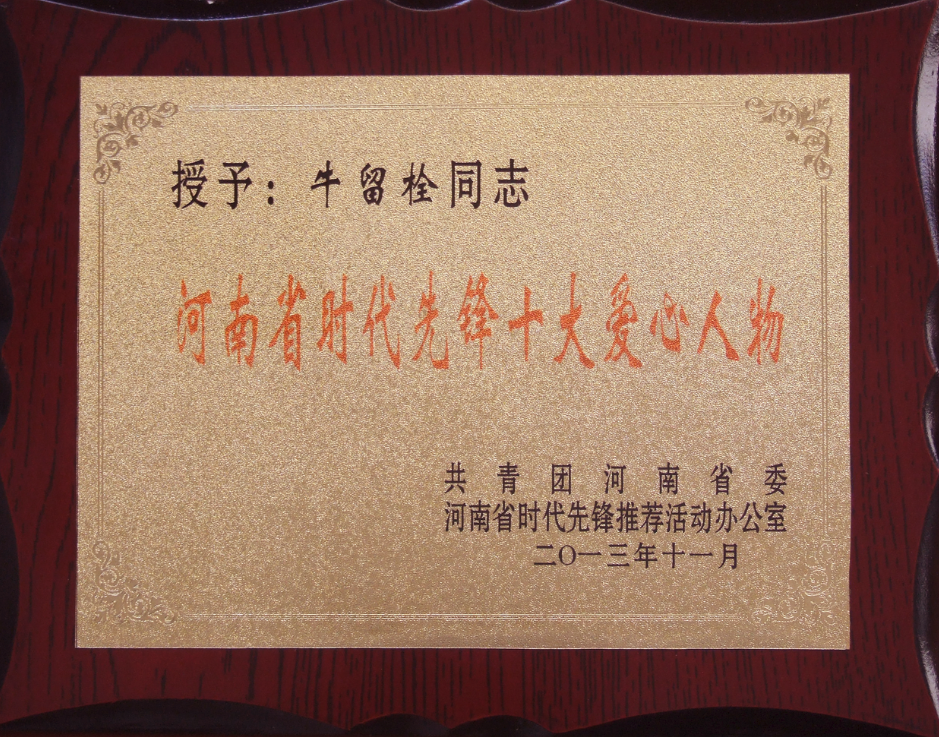 授予：牛留栓同志
河南省时代先锋十大爱心人物
共青团河南省委
河南省时代先锋推荐活动办公室
二〇一三年十一月